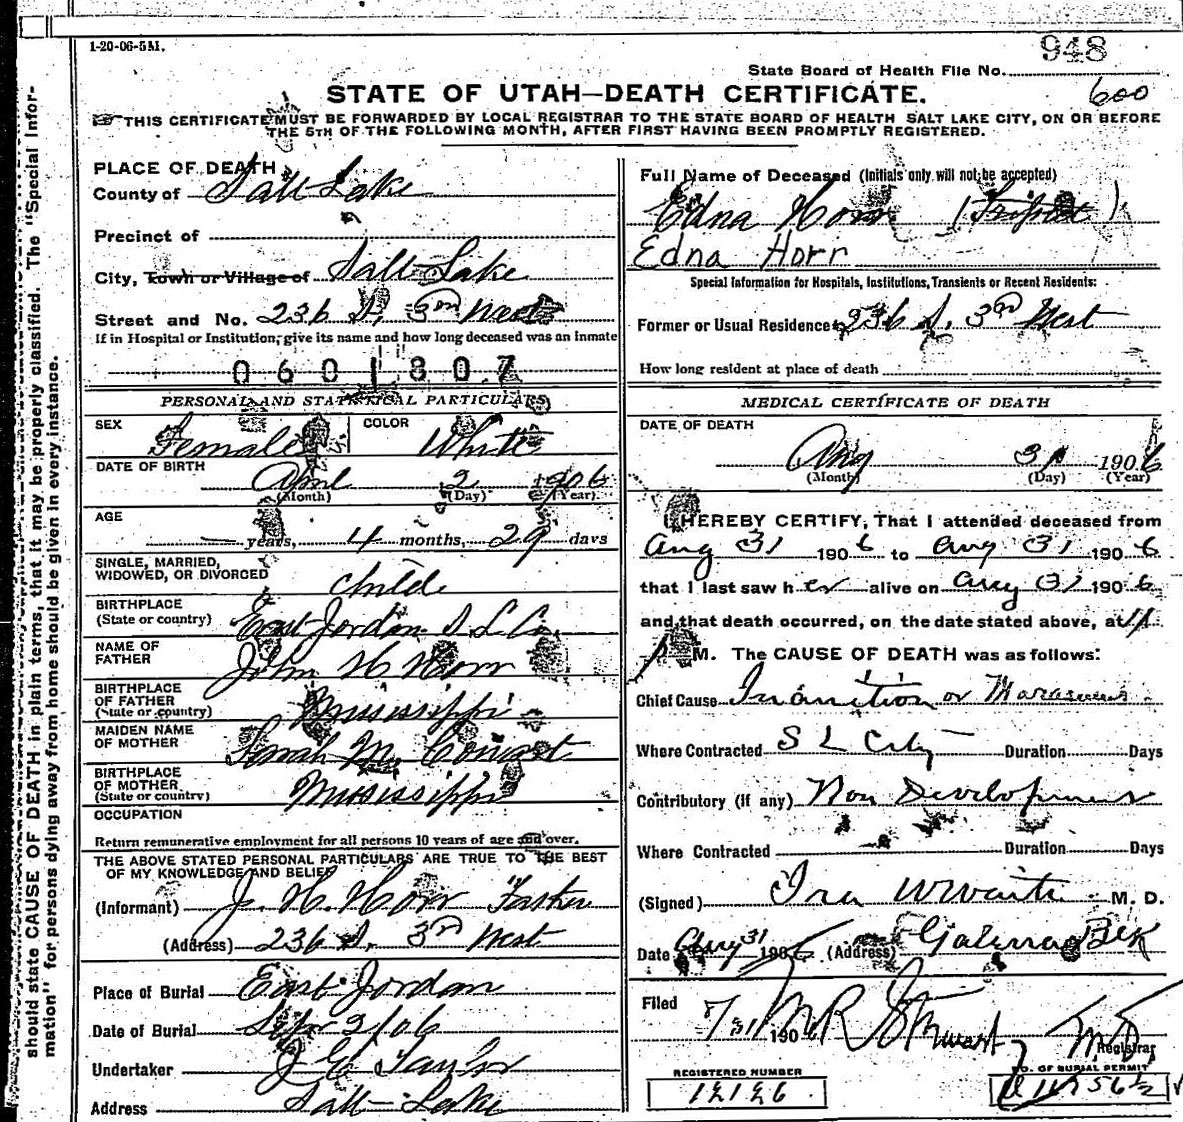 1-20-06-5M.
948
State Board of Health File No.
600
STATE OF UTAH—DEATH CERTIFICATE.
THIS CERTIFICATE MUST BE FORWARDED BY LOCAL REGISTRAR TO THE STATE BOARD OF HEALTH SALT LAKE CITY, ON OR BEFORE
THE 5TH OF THE FOLLOWING MONTH, AFTER FIRST HAVING BEEN PROMPTLY REGISTERED.
should state CAUSE OF DEATH in plain terms, that it may be properly classified. The "Special Infor-
mation" for persons dying away from home should be given in every instance.
PLACE OF DEATH
County of Salt Lake
Precinct of
City, Town or Village of Salt Lake
Street and No. 236 S. 3rd West
If in Hospital or Institution, give its name and how long deceased was an inmate
0601807
PERSONAL AND STATISTICAL PARTICULARS
SEX Female COLOR White
DATE OF BIRTH
April 2 1906
(Month) (Day) (Year)
AGE
— years, 4 months, 29 days
SINGLE, MARRIED,
WIDOWED, OR DIVORCED child
BIRTHPLACE
(State or country) East Jordan S L Co.
NAME OF
FATHER John H Horr
BIRTHPLACE
OF FATHER
(State or country) Mississippi
MAIDEN NAME
OF MOTHER Sarah M.
BIRTHPLACE
OF MOTHER
(State or country) Mississippi
OCCUPATION
Return remunerative employment for all persons 10 years of age and over.
THE ABOVE STATED PERSONAL PARTICULARS ARE TRUE TO THE BEST
OF MY KNOWLEDGE AND BELIEF
(Informant) J. H. Horr Father
(Address) 236 S. 3rd West
Place of Burial East Jordan
Date of Burial Sep 2/06
Undertaker J E Taylor
Address Salt Lake
Full Name of Deceased (Initials only will not be accepted)
Edna Horr
Edna Horr
Special Information for Hospitals, Institutions, Transients or Recent Residents:
Former or Usual Residence 236 S. 3rd West
How long resident at place of death
MEDICAL CERTIFICATE OF DEATH
DATE OF DEATH
Aug 31 1906
(Month) (Day) (Year)
I HEREBY CERTIFY, That I attended deceased from
Aug 31 1906 to Aug 31 1906
that I last saw her alive on Aug 31 1906
and that death occurred, on the date stated above, at 11
P M. The CAUSE OF DEATH was as follows:
Chief Cause Inanition or Marasmus
Where Contracted S L City Duration Days
Contributory (If any) Non Development
Where Contracted Duration Days
(Signed) Ira M. D.
Date Aug 31 1906 (Address)
Filed 8/31 1906 M R Stewart M D.
Registrar
REGISTERED NUMBER
12126
NO. OF BURIAL PERMIT